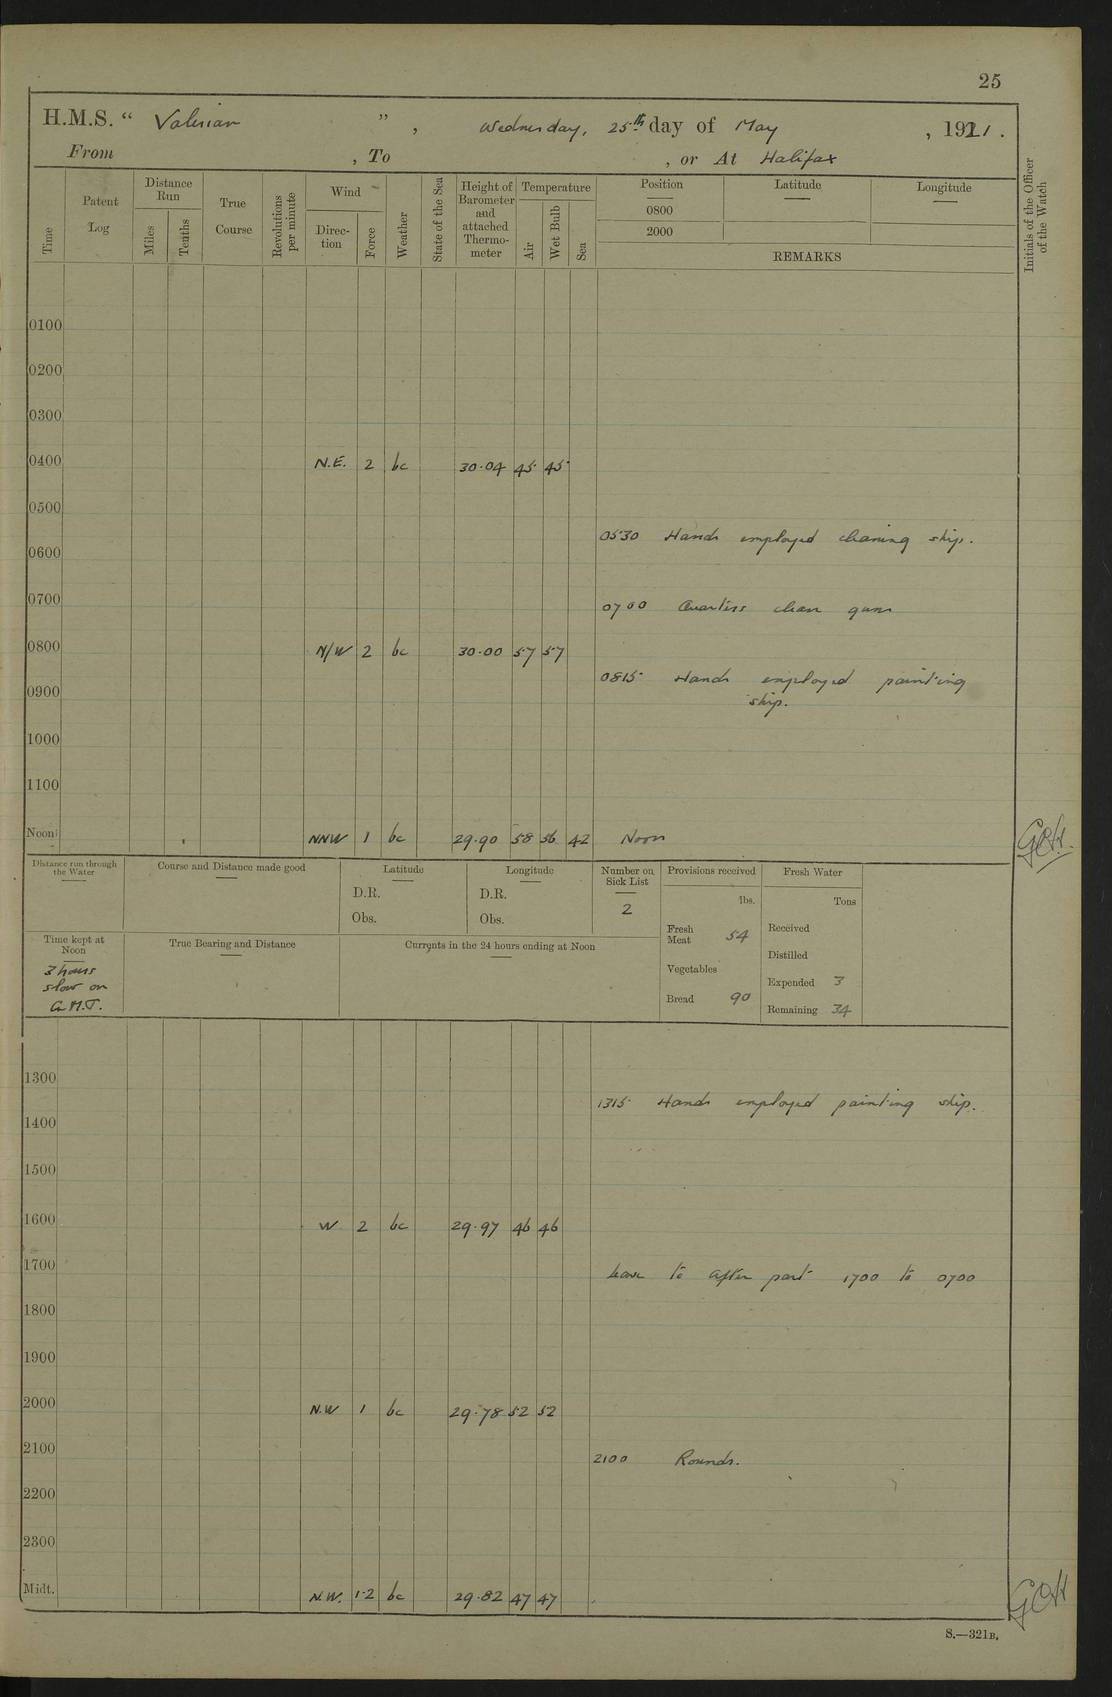 25
H.M.S. “ Valerian ” , Wednesday, 25th day of May , 1921.
From , To , or At Halifax
Time
Patent Log
Distance Run
Miles
Tenths
True Course
Revolutions per minute
Wind
Direc- tion
Force
Weather
State of the Sea
Height of Barometer and attached Thermo- meter
Temperature
Air
Wet Bulb
Sea
Position
0800
2000
Latitude
Longitude
REMARKS
Initials of the Officer of the Watch
0100
0200
0300
0400 N.E. 2 bc 30.04 45 45
0500
0530 Hands employed cleaning ship.
0600
0700 0700 Quarters clean guns
0800 N/W 2 bc 30.00 57 57
0815 Hands employed painting
0900
ship.
1000
1100
Noon NNW 1 bc 29.90 58 56 42 Noon GCH.
Distance run through the Water
Course and Distance made good
Latitude
D.R.
Obs.
Longitude
D.R.
Obs.
Number on Sick List
2
Provisions received
lbs.
Fresh Meat 54
Vegetables
Bread 90
Fresh Water
Tons
Received
Distilled
Expended 3
Remaining 34
Time kept at Noon
3 hours
slow on
G.M.T.
True Bearing and Distance
Currents in the 24 hours ending at Noon
1300
1315 Hands employed painting ship.
1400
1500
1600 W 2 bc 29.97 46 46
1700 Leave to after part 1700 to 0700
1800
1900
2000 N.W 1 bc 29.78 52 52
2100 2100 Rounds.
2200
2300
Midt. N.W. 1-2 bc 29.82 47 47 GCH
S.—321B.